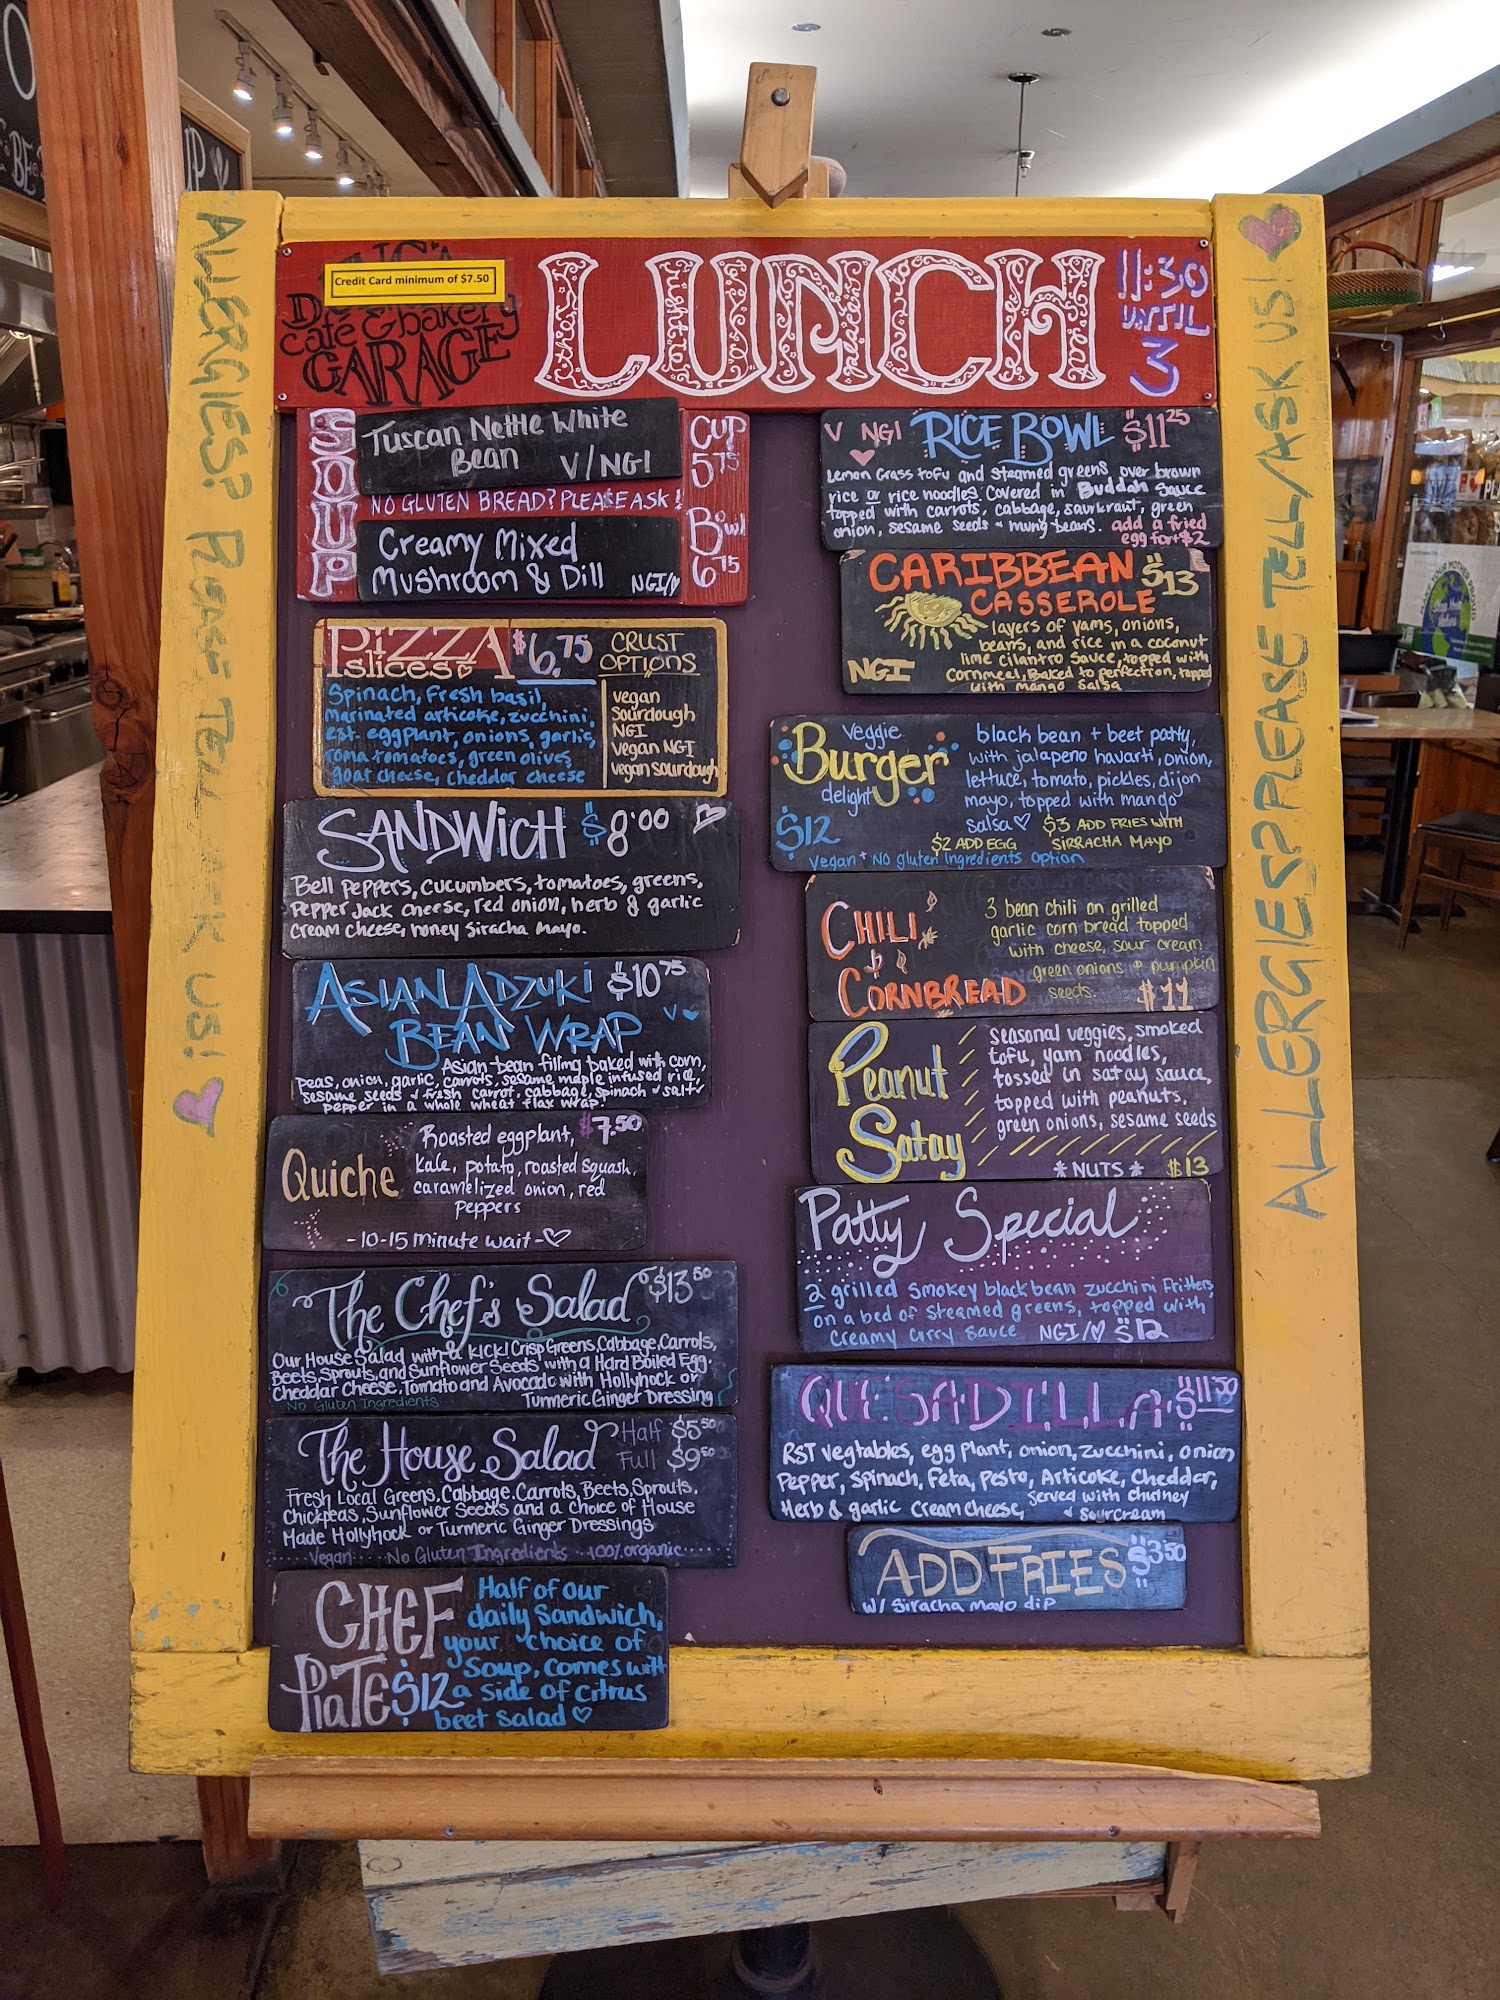 Credit Card minimum of $7.50
café & bakery
GARAGE
LUNCH
11:30
UNTIL
3
ALLERGIES? PLEASE TELL/ASK US!
ALLERGIES? PLEASE TELL/ASK US!
SOUP
Tuscan Nettle White
Bean V/NGI
NO GLUTEN BREAD? PLEASE ASK!
Creamy Mixed
Mushroom & Dill NGI/
CUP
5.75
Bowl
6.75
PiZZA
slices
$6.75
CRUST
OPTIONS
Spinach, fresh basil,
marinated articoke, zucchini,
est. eggplant, onions, garlic,
roma tomatoes, green olives,
goat cheese, cheddar cheese
vegan
Sourdough
NGI
Vegan NGI
vegan sourdough
SANDWiCH $8.00
Bell peppers, cucumbers, tomatoes, greens,
Pepper Jack cheese, red onion, herb & garlic
cream cheese, honey Siracha Mayo.
ASIAN ADZUKi $10.75
BEAN WRAP V
Asian bean filling baked with corn,
peas, onion, garlic, carrots, sesame maple infused rice,
sesame seeds + fresh carrot, cabbage, spinach + salt +
pepper in a whole wheat flax wrap.
Quiche
Roasted eggplant, $7.50
kale, potato, roasted squash,
caramelized onion, red
peppers
-10-15 minute wait-
The Chef's Salad $13.50
Our House Salad with a KICK! Crisp Greens, Cabbage, Carrots,
Beets, Sprouts, and Sunflower Seeds with a Hard Boiled Egg.
Cheddar Cheese, Tomato and Avocado with Hollyhock or
No Gluten Ingredients Turmeric Ginger Dressing
The House Salad Half $5.50
Full $9.50
Fresh Local Greens, Cabbage, Carrots, Beets, Sprouts,
Chickpeas, Sunflower Seeds and a Choice of House
Made Hollyhock or Turmeric Ginger Dressings
Vegan... No Gluten Ingredients ...100% organic
CHEF
PlaTE $12
Half of our
daily Sandwich,
your choice of
Soup, comes with
a side of citrus
beet salad
V NGI RICE BOWL $11.25
Lemon Grass tofu and steamed greens over brown
rice or rice noodles. Covered in Buddah Sauce
topped with carrots, cabbage, saurkraut, green
onion, sesame seeds + mung beans. add a fried
egg for +$2
CARIBBEAN $13
CASSEROLE
layers of yams, onions,
beans, and rice in a coconut
lime cilantro sauce, topped with
NGI cornmeel, Baked to perfection, topped
with mango salsa
veggie
Burger
delight
$12
black bean + beet patty,
with jalapeno havarti, onion,
lettuce, tomato, pickles, dijon
mayo, topped with mango
salsa $3 ADD FRIES WITH
$2 ADD EGG SIRRACHA MAYO
vegan + No gluten Ingredients option
CHILI
CORNBREAD
3 bean chili on grilled
garlic corn bread topped
with cheese, sour cream
green onions + pumpkin
seeds. $11
Peanut
Satay
seasonal veggies, smoked
tofu, yam noodles,
tossed in satay sauce,
topped with peanuts,
green onions, sesame seeds
*NUTS* $13
Patty Special
2 grilled smokey black bean zucchini fritters
on a bed of steamed greens, topped with
creamy curry sauce NGI/ $12
QUESADILLA $11.50
RST vegtables, egg plant, onion, zucchini, onion
Pepper, spinach, feta, pesto, Articoke, cheddar,
Herb & garlic cream cheese, served with chutney
+ sour cream
ADD FRIES $3.50
w/ Siracha mayo dip